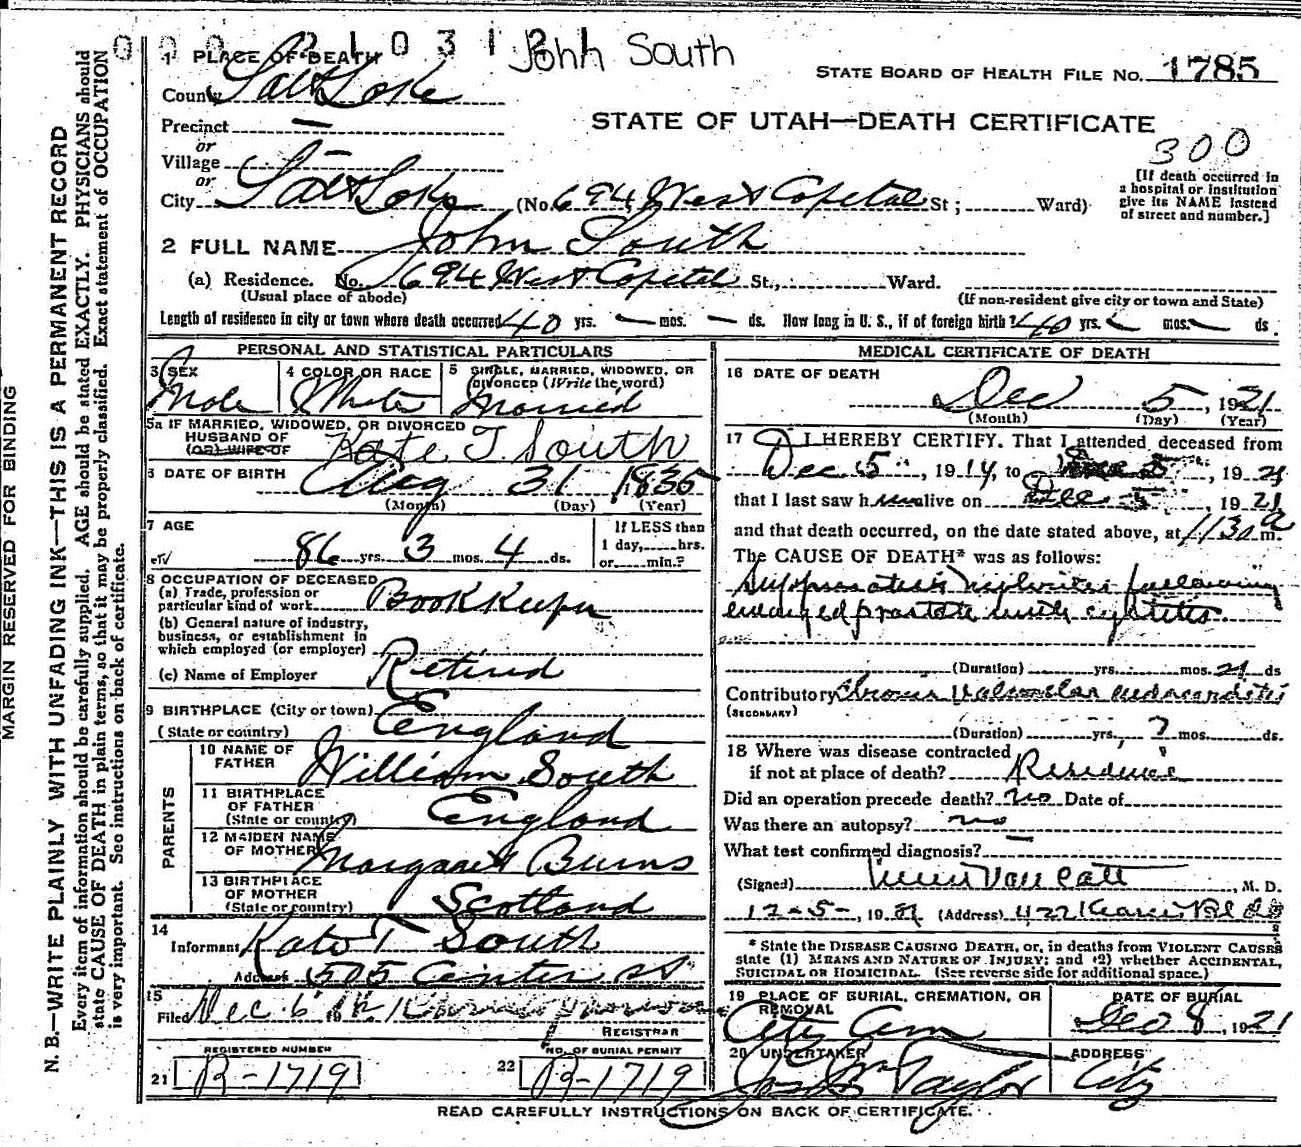 MARGIN RESERVED FOR BINDING
N. B.—WRITE PLAINLY WITH UNFADING INK—THIS IS A PERMANENT RECORD
Every item of information should be carefully supplied. AGE should be stated EXACTLY. PHYSICIANS should
state CAUSE OF DEATH in plain terms, so that it may be properly classified. Exact statement of OCCUPATION
is very important. See instructions on back of certificate.
John South
1 PLACE OF DEATH
STATE BOARD OF HEALTH FILE NO. 1785
County Salt Lake
STATE OF UTAH—DEATH CERTIFICATE
Precinct —
or
300
Village —
or
City Salt Lake (No. 694 West Capital St; Ward)
[If death occurred in
a hospital or institution
give its NAME instead
of street and number.]
2 FULL NAME John South
(a) Residence. No. 694 West Capital St., Ward.
(Usual place of abode)
(If non-resident give city or town and State)
Length of residence in city or town where death occurred 40 yrs. — mos. — ds. How long in U. S., if of foreign birth? 40 yrs. — mos. — ds.
PERSONAL AND STATISTICAL PARTICULARS
3 SEX
Male
4 COLOR OR RACE
White
5 SINGLE, MARRIED, WIDOWED, OR
DIVORCED (Write the word)
Married
5a IF MARRIED, WIDOWED, OR DIVORCED
HUSBAND OF
(OR) WIFE OF Kate T South
6 DATE OF BIRTH
Aug 31 1835
(Month) (Day) (Year)
7 AGE
86 yrs. 3 mos. 4 ds.
If LESS than
1 day, hrs.
or min.?
8 OCCUPATION OF DECEASED
(a) Trade, profession or
particular kind of work Bookkeeper
(b) General nature of industry,
business, or establishment in
which employed (or employer)
(c) Name of Employer Retired
9 BIRTHPLACE (City or town)
(State or country) England
PARENTS
10 NAME OF
FATHER William South
11 BIRTHPLACE
OF FATHER
(State or country) England
12 MAIDEN NAME
OF MOTHER Margaret Burns
13 BIRTHPLACE
OF MOTHER
(State or country) Scotland
14
Informant Kate T South
Address 505 Center St
15
Filed Dec. 6
REGISTRAR
REGISTERED NUMBER
21 R-1719
NO. OF BURIAL PERMIT
22 R-1719
MEDICAL CERTIFICATE OF DEATH
16 DATE OF DEATH
Dec 5, 1921
(Month) (Day) (Year)
17 I HEREBY CERTIFY, That I attended deceased from
Dec 5, 1914, to 1921
that I last saw him alive on Dec 5 1921
and that death occurred, on the date stated above, at 1130 a m.
The CAUSE OF DEATH* was as follows:
nephritis following
enlarged prostate with cystitis.
(Duration) yrs. mos. 21 ds
Contributory Chronic Valvular endocarditis
(SECONDARY)
(Duration) yrs, ? mos. ds.
18 Where was disease contracted
if not at place of death? Residence
Did an operation precede death? no Date of
Was there an autopsy? no
What test confirmed diagnosis? —
(Signed) Van Catt, M. D.
12-5-, 1921 (Address) 422 Kearns Bldg
* State the DISEASE CAUSING DEATH, or, in deaths from VIOLENT CAUSES
state (1) MEANS AND NATURE OF INJURY; and (2) whether ACCIDENTAL,
SUICIDAL OR HOMICIDAL. (See reverse side for additional space.)
19 PLACE OF BURIAL, CREMATION, OR
REMOVAL
City Cem
DATE OF BURIAL
Dec 8, 1921
20 UNDERTAKER
Taylor
ADDRESS
City
READ CAREFULLY INSTRUCTIONS ON BACK OF CERTIFICATE.